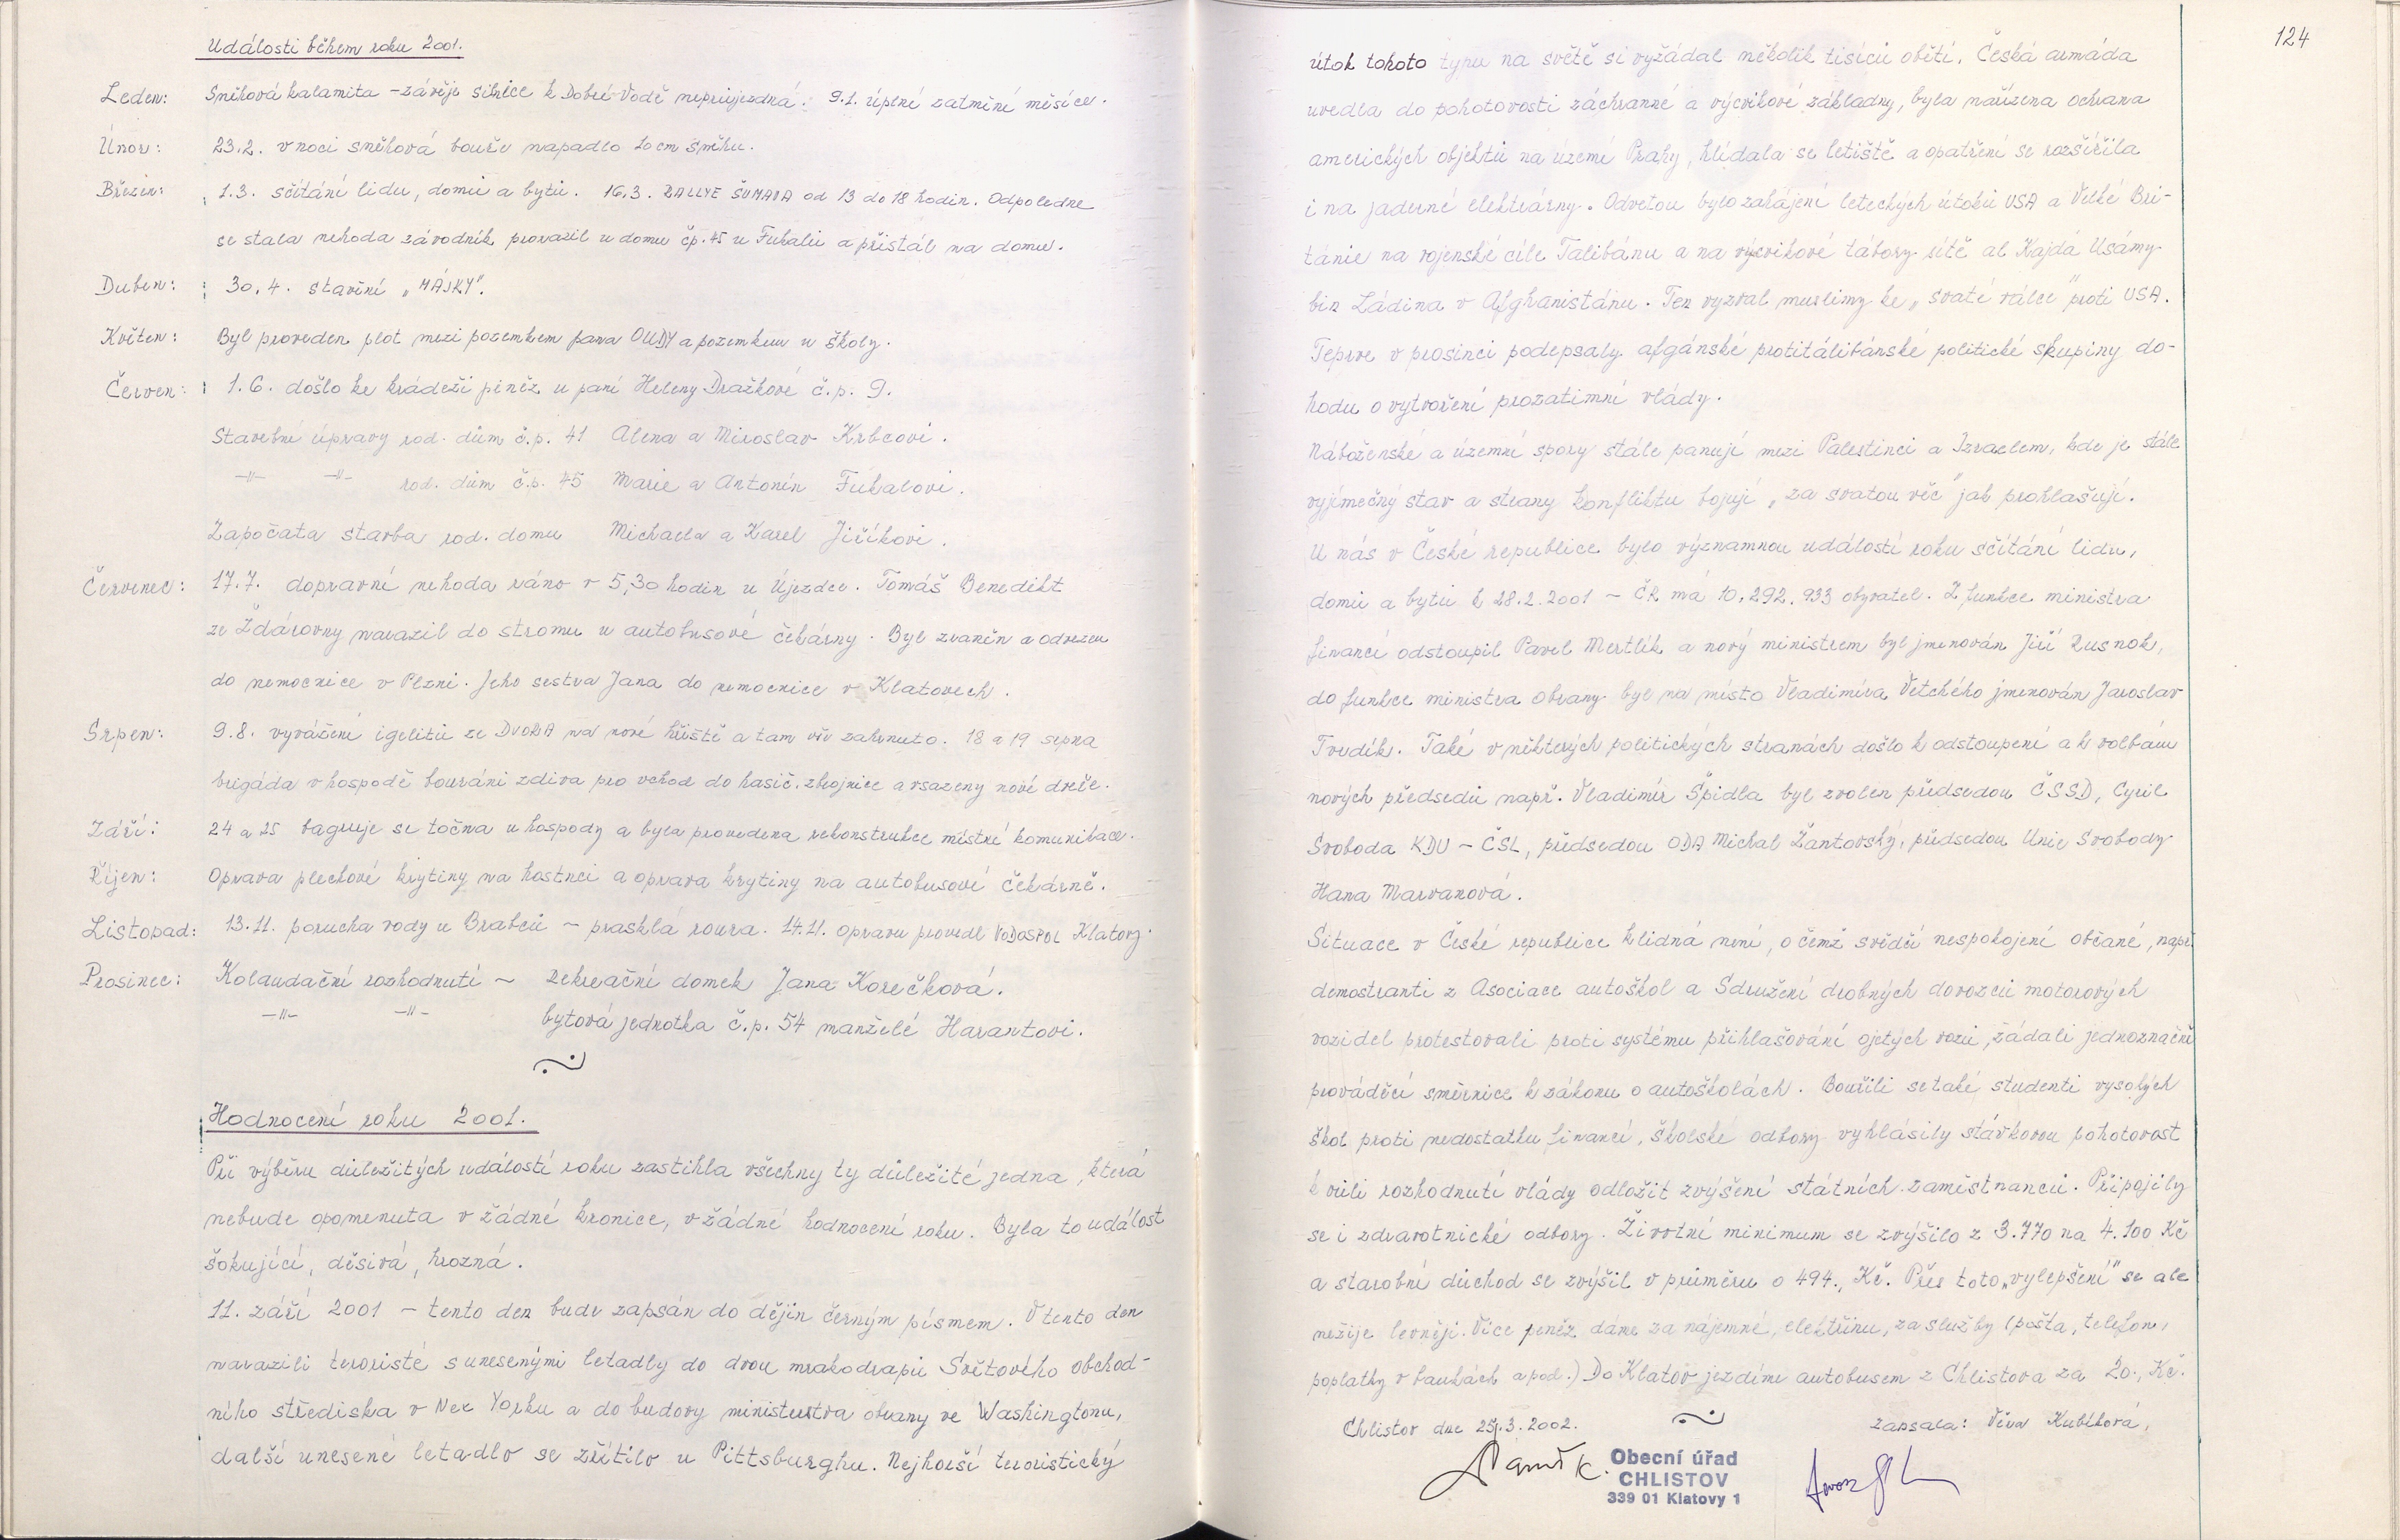 Události během roku 2001.
Leden: Sněhová kalamita – závěje silnice k Dobré Vodě neprůjezdná. 9.1. úplné zatmění měsíce.
Únor: 23.2. v noci sněhová bouře napadlo 20 cm sněhu.
Březen: 1.3. sčítání lidu, domů a bytů. 16.3. RALLYE ŠUMAVA od 13 do 18 hodin. Odpoledne
se stala nehoda závodník prorazil u domu čp. 45 u Fukalů a přistál na domu.
Duben: 30.4. stavění „MÁJKY".
Květen: Byl proveden plot mezi pozemkem pana OUDY a pozemkem u školy.
Červen: 1.6. došlo ke krádeži peněz u paní Heleny Dražkové č.p. 9.
Stavební úpravy rod. dům č.p. 41 Alena a Miroslav Krbcovi.
–"– –"– rod. dům č.p. 45 Marie a Antonín Fukalovi.
Započata stavba rod. domu Michaela a Karel Jiříkovi.
Červenec: 17.7. dopravní nehoda ráno v 5,30 hodin u Újezdce. Tomáš Benedikt
ze Ždárovny narazil do stromu u autobusové čekárny. Byl zraněn a odvezen
do nemocnice v Plzni. Jeho sestra Jana do nemocnice v Klatovech.
Srpen: 9.8. vyvážení igelitů ze DVORA na nové hřiště a tam vše zahrnuto. 18 a 19 srpna
brigáda v hospodě bourání zdiva pro vchod do hasič. zbrojnice a vsazeny nové dveře.
Září: 24 a 25 bagruje se točna u hospody a byla provedena rekonstrukce místní komunikace.
Říjen: Oprava plechové krytiny na hostinci a oprava krytiny na autobusové čekárně.
Listopad: 13.11. porucha vody u Brabců – prasklá roura. 14.11. opravu provedl VODOSPOL Klatovy.
Prosinec: Kolaudační rozhodnutí – rekreační domek Jana Korečková.
–"– –"– bytová jednotka č.p. 54 manželé Harantovi.
Hodnocení roku 2001.
Při výběru důležitých událostí roku zastihla všechny ty důležité jedna, která
nebude opomenuta v žádné kronice, v žádné hodnocení roku. Byla to událost
šokující, děsivá, hrozná.
11. září 2001 – tento den bude zapsán do dějin černým písmem. V tento den
narazili teroristé s unesenými letadly do dvou mrakodrapů Světového obchod-
ního střediska v New Yorku a do budovy ministerstva obrany ve Washingtonu,
další unesené letadlo se zřítilo u Pittsburghu. Nejhorší teroristický
124
útok tohoto typu na světě si vyžádal několik tisíců obětí. Česká armáda
uvedla do pohotovosti záchranné a výcvikové základny, byla nařízena ochrana
amerických objektů na území Prahy, hlídala se letiště a opatření se rozšířila
i na jaderné elektrárny. Odvetou bylo zahájení leteckých útoků USA a Velké Bri-
tánie na vojenské cíle Talibánu a na výcvikové tábory sítě al Kajdá Usámy
bin Ládina v Afghanistánu. Ten vyzval muslimy ke „svaté válce" proti USA.
Teprve v prosinci podepsaly afgánské protitálibánské politické skupiny do-
hodu o vytvoření prozatimní vlády.
Náboženské a územní spory stále panují mezi Palestinci a Izraelem, kde je stále
vyjímečný stav a strany konfliktu bojují „za svatou věc" jak prohlašují.
U nás v České republice bylo významnou událostí roku sčítání lidu,
domů a bytů k 28.2.2001 – ČR má 10.292.933 obyvatel. Z funkce ministra
financí odstoupil Pavel Mertlík a nový ministrem byl jmenován Jiří Rusnok,
do funkce ministra obrany byl na místo Vladimíra Vetchého jmenován Jaroslav
Tvrdík. Také v některých politických stranách došlo k odstoupení a k volbám
nových předsedů např. Vladimír Špidla byl zvolen předsedou ČSSD, Cyril
Svoboda KDU – ČSL, předsedou ODA Michal Žantovský, předsedou Unie Svobody
Hana Marvanová.
Situace v České republice klidná není, o čemž svědčí nespokojení občané, např.
demostranti z Asociace autoškol a Sdružení drobných dovozců motorových
vozidel protestovali proti systému přihlašování ojetých vozů, žádali jednoznačné
prováděcí směrnice k zákonu o autoškolách. Bouřili se také studenti vysokých
škol proti nedostatku financí, školské odbory vyhlásily stávkovou pohotovost
k vůli rozhodnutí vlády odložit zvýšení státních zaměstnanců. Připojily
se i zdravotnické odbory. Životní minimum se zvýšilo z 3.770 na 4.100 Kč
a starobní důchod se zvýšil v průměru o 494., Kč. Přes toto „vylepšení" se ale
nežije levněji. Více peněz dáme za nájemné, elektřinu, za služby (pošta, telefon,
poplatky v bankách a pod.) Do Klatov jezdíme autobusem z Chlistova za 20., Kč.
Chlistov dne 25.3.2002. zapsala: Věra Kubíková,
Obecní úřad
CHLISTOV
339 01 Klatovy 1